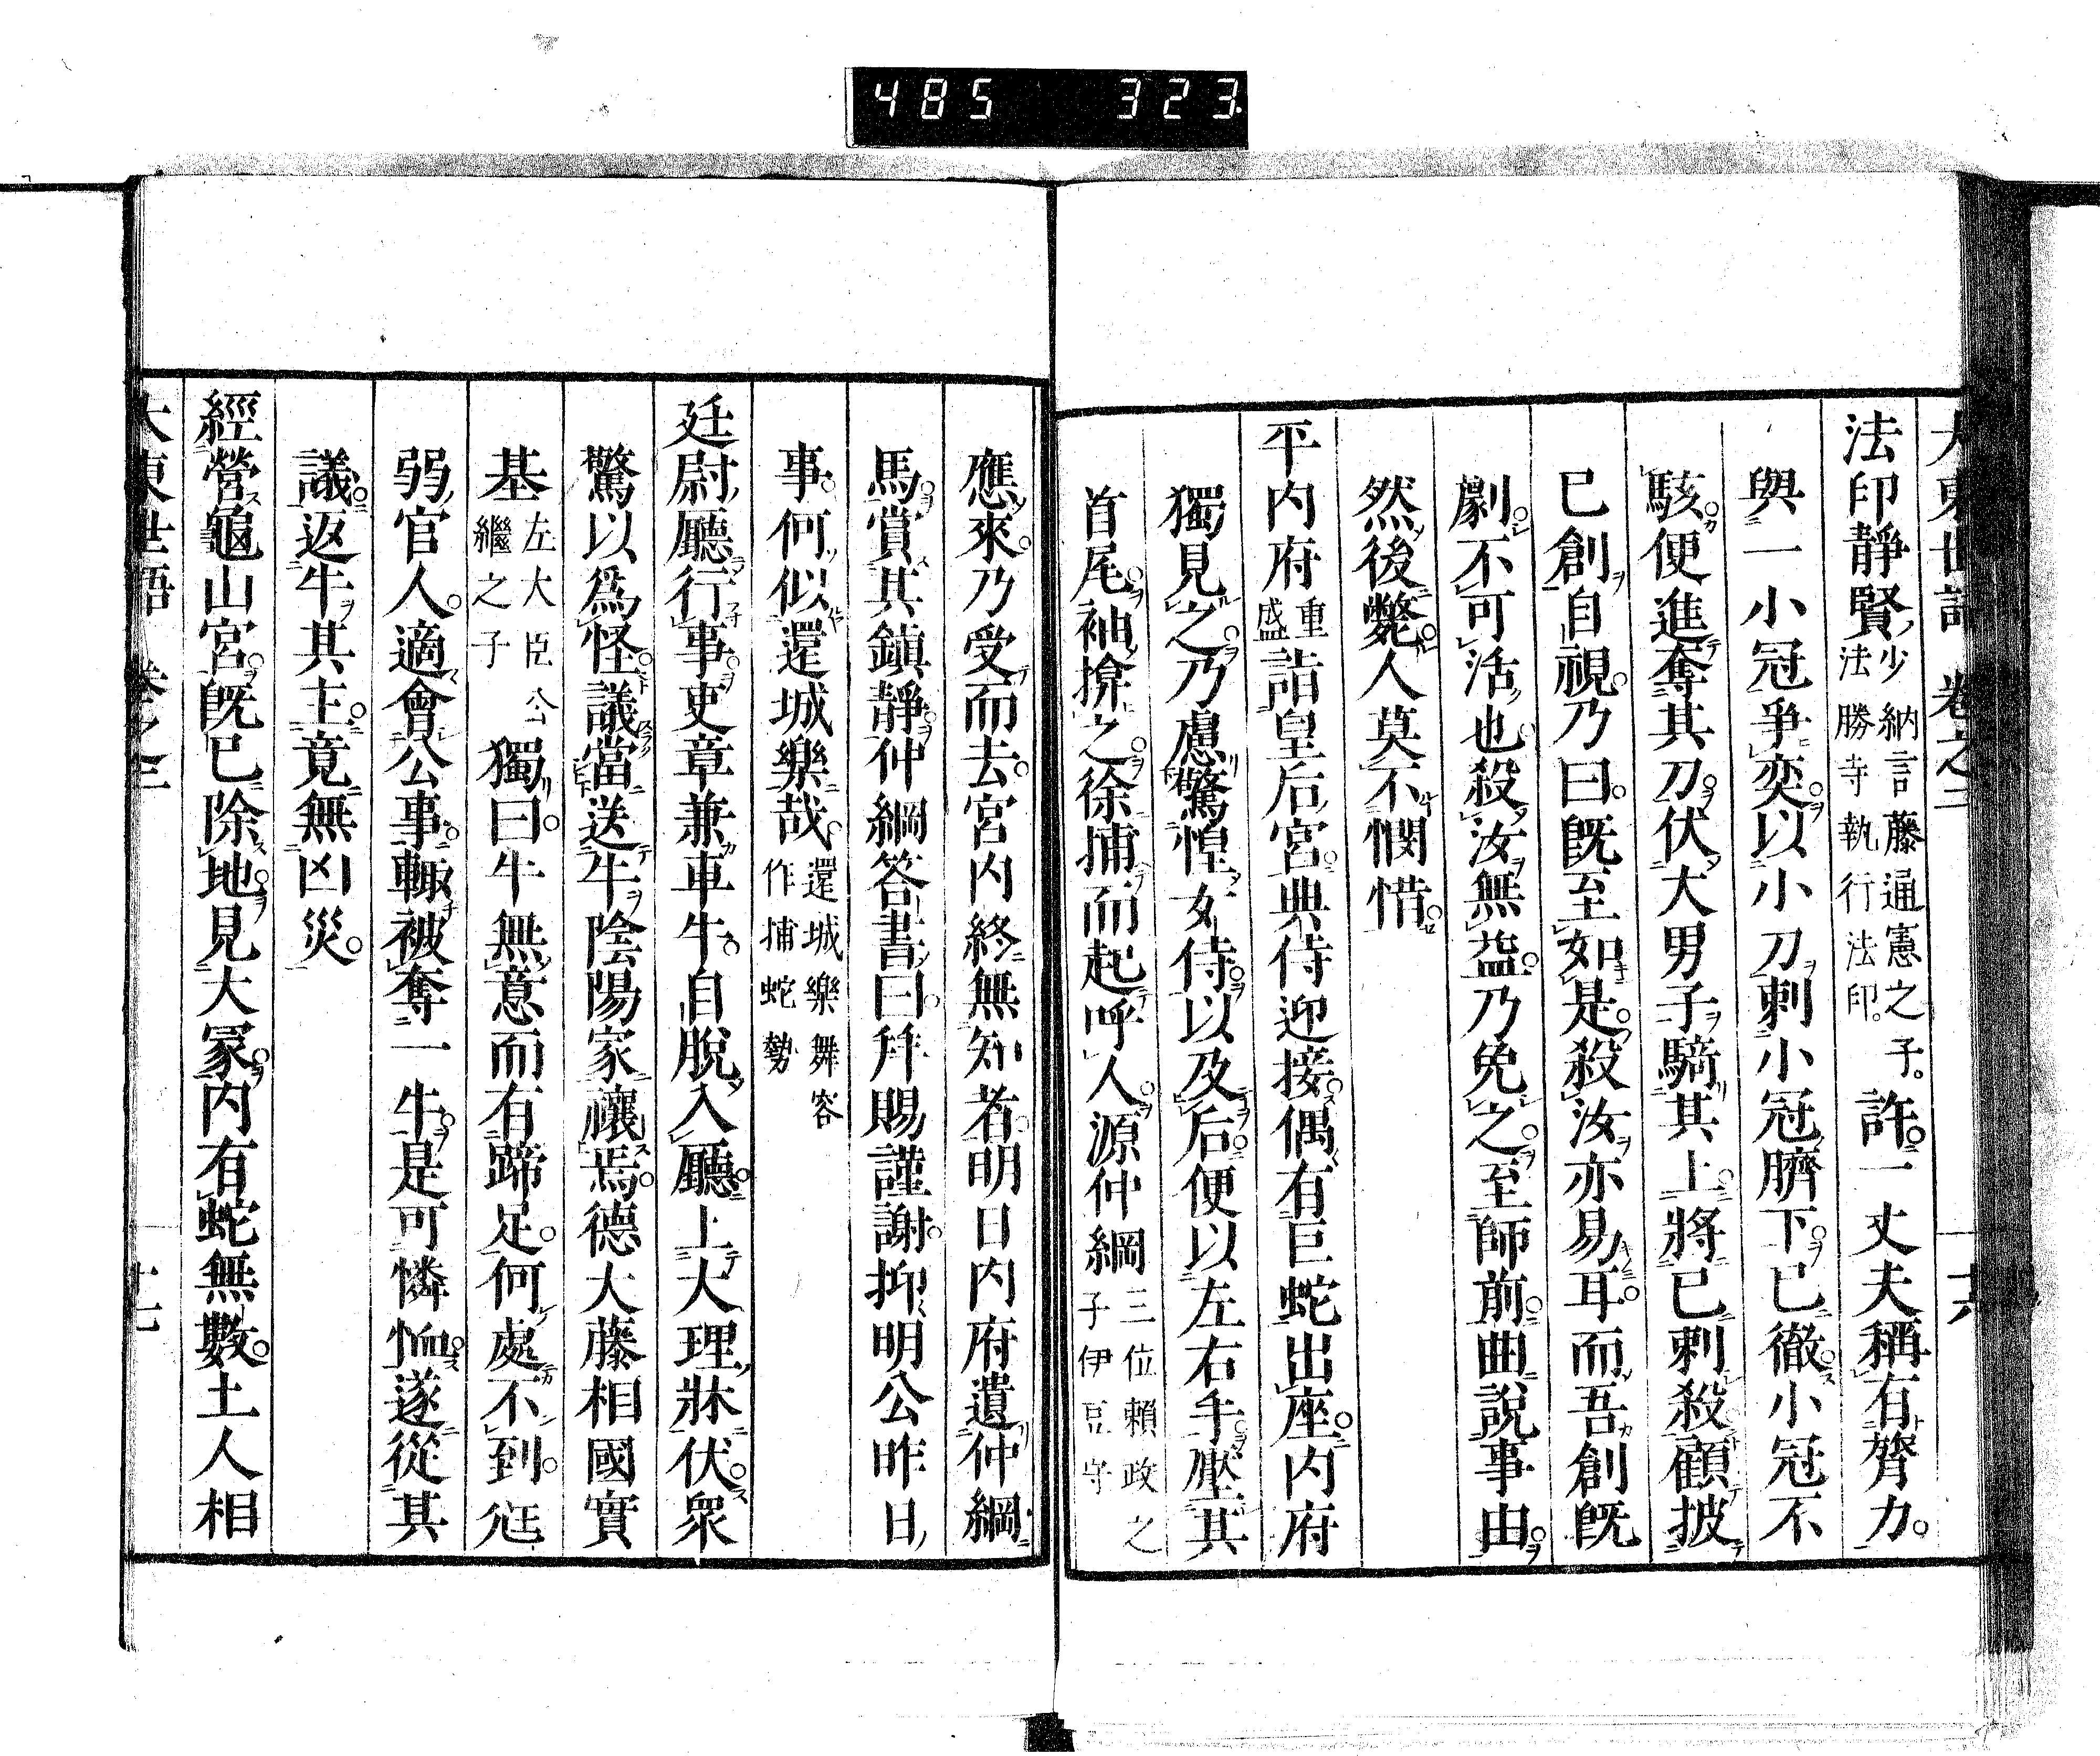 485 323
大東世語 卷之三 十六
法印靜賢少納言藤通憲之子。法勝寺執行法印。許一丈夫稱有膂力。
與一小冠爭奕以小刀刺小冠臍下已徹小冠不
駭便進奪其刀伏大男子騎其上將已刺殺顧披
已創自視乃曰既至如是殺汝亦易耳而吾創既
劇不可活也殺汝無益乃免之至師前曲說事由
然後斃人莫不憫惜
平內府重盛詣皇后宮典侍迎接偶有巨蛇出座內府
獨見之乃慮驚惶女侍以及后便以左右手壓其
首尾袖揜之徐捕而起呼人源仲綱三位賴政之子伊豆守
應來乃受而去宮內終無知者明日內府遺仲綱
馬賞其鎮靜仲綱答書曰拜賜謹謝抑明公昨日
事何似還城樂哉還城樂舞容作捕蛇勢
廷尉廳行事吏章兼車牛自脫入廳上大理牀伏衆
驚以爲怪議當送牛陰陽家禳焉德大藤相國實
基左大臣公繼之子獨曰牛無意而有蹄足何處不到尫
弱官人適會公事輙被奪一牛是可憐恤遂從其
議返牛其主竟無凶災
經營龜山宮既已除地見大冢內有蛇無數土人相
大東世語 卷之三 十七